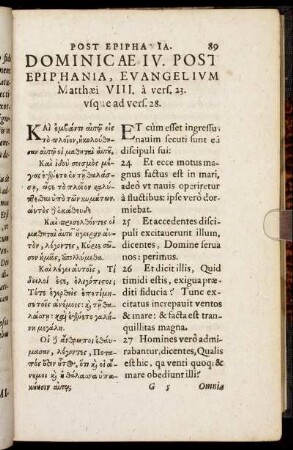 POST EPIPHANIA. 89
DOMINICAE IV. POST
EPIPHANIA, EVANGELIVM
Matthæi VIII. à vers. 23.
vsque ad vers. 28.
ΚΑὶ ἐμβάντι αὐτῷ εἰς
τὸ πλοῖον, ἠκολούθησαν
αὐτῷ οἱ μαθηταὶ αὐτοῦ,
Καὶ ἰδοὺ σεισμὸς μέγας
ἐγένετο ἐν τῇ θαλάσσῃ,
ὥστε τὸ πλοῖον καλύπτεσθαι
ὑπὸ τῶν κυμάτων.
αὐτὸς δὲ ἐκάθευδε.
Καὶ προσελθόντες οἱ
μαθηταὶ αὐτοῦ ἤγειραν αὐτὸν,
λέγοντες, Κύριε σῶσον
ἡμᾶς, ἀπολλύμεθα.
Καὶ λέγει αὐτοῖς, Τί
δειλοί ἐστε, ὀλιγόπιστοι;
Τότε ἐγερθεὶς ἐπετίμησε
τοῖς ἀνέμοις καὶ τῇ θαλάσσῃ·
καὶ ἐγένετο γαλήνη
μεγάλη.
Οἱ δὲ ἄνθρωποι ἐθαύμασαν,
λέγοντες, Ποταπός
ἐστιν οὗτος, ὅτι καὶ οἱ ἄνεμοι
καὶ ἡ θάλασσα ὑπακούουσιν
αὐτῷ;
ET cùm esset ingressus
nauim secuti sunt eũ
discipuli sui:
24 Et ecce motus magnus
factus est in mari,
adeò vt nauis operiretur
à fluctibus: ipse verò dormiebat.
25 Et accedentes discipuli
excitauerunt illum,
dicentes, Domine serua
nos: perimus.
26 Et dicit illis, Quid
timidi estis, exigua præditi
fiducia? Tunc excitatus
increpauit ventos
& mare: & facta est tranquillitas
magna.
27 Homines verò admirabantur,
dicentes, Qualis
est hic, qa venti quoq; &
mare obediunt illi?
G 5 Omnia